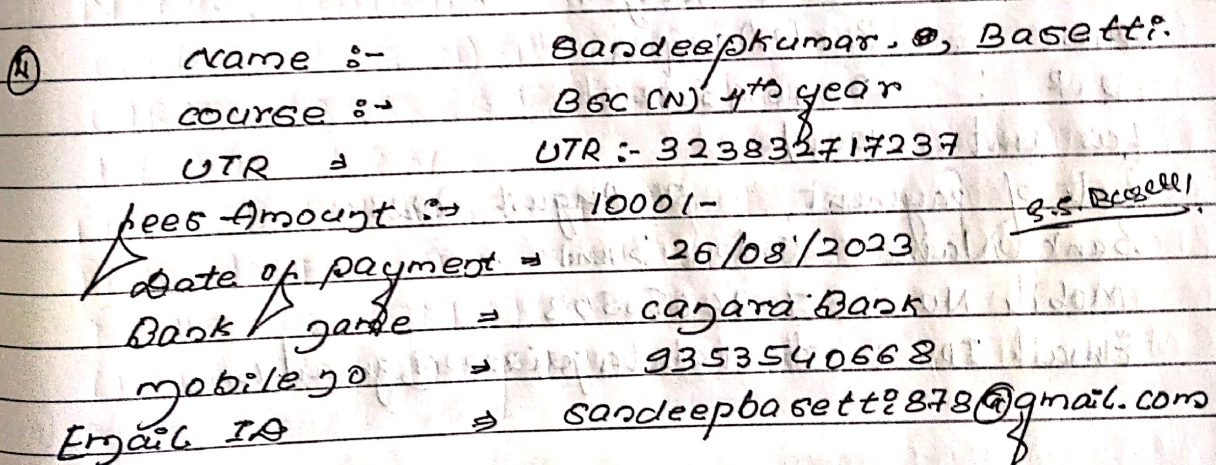 ④ Name :- Sandeepkumar. S, Basetti.
course :- BSC (N) 4th year
UTR → UTR :- 323832717237
fees Amount :→ 1000/-
S.S. Basetti
Date of payment → 26/08/2023
Bank name → canara Bank
mobile no → 9353540668
Email ID → sandeepbasetti878@gmail.com